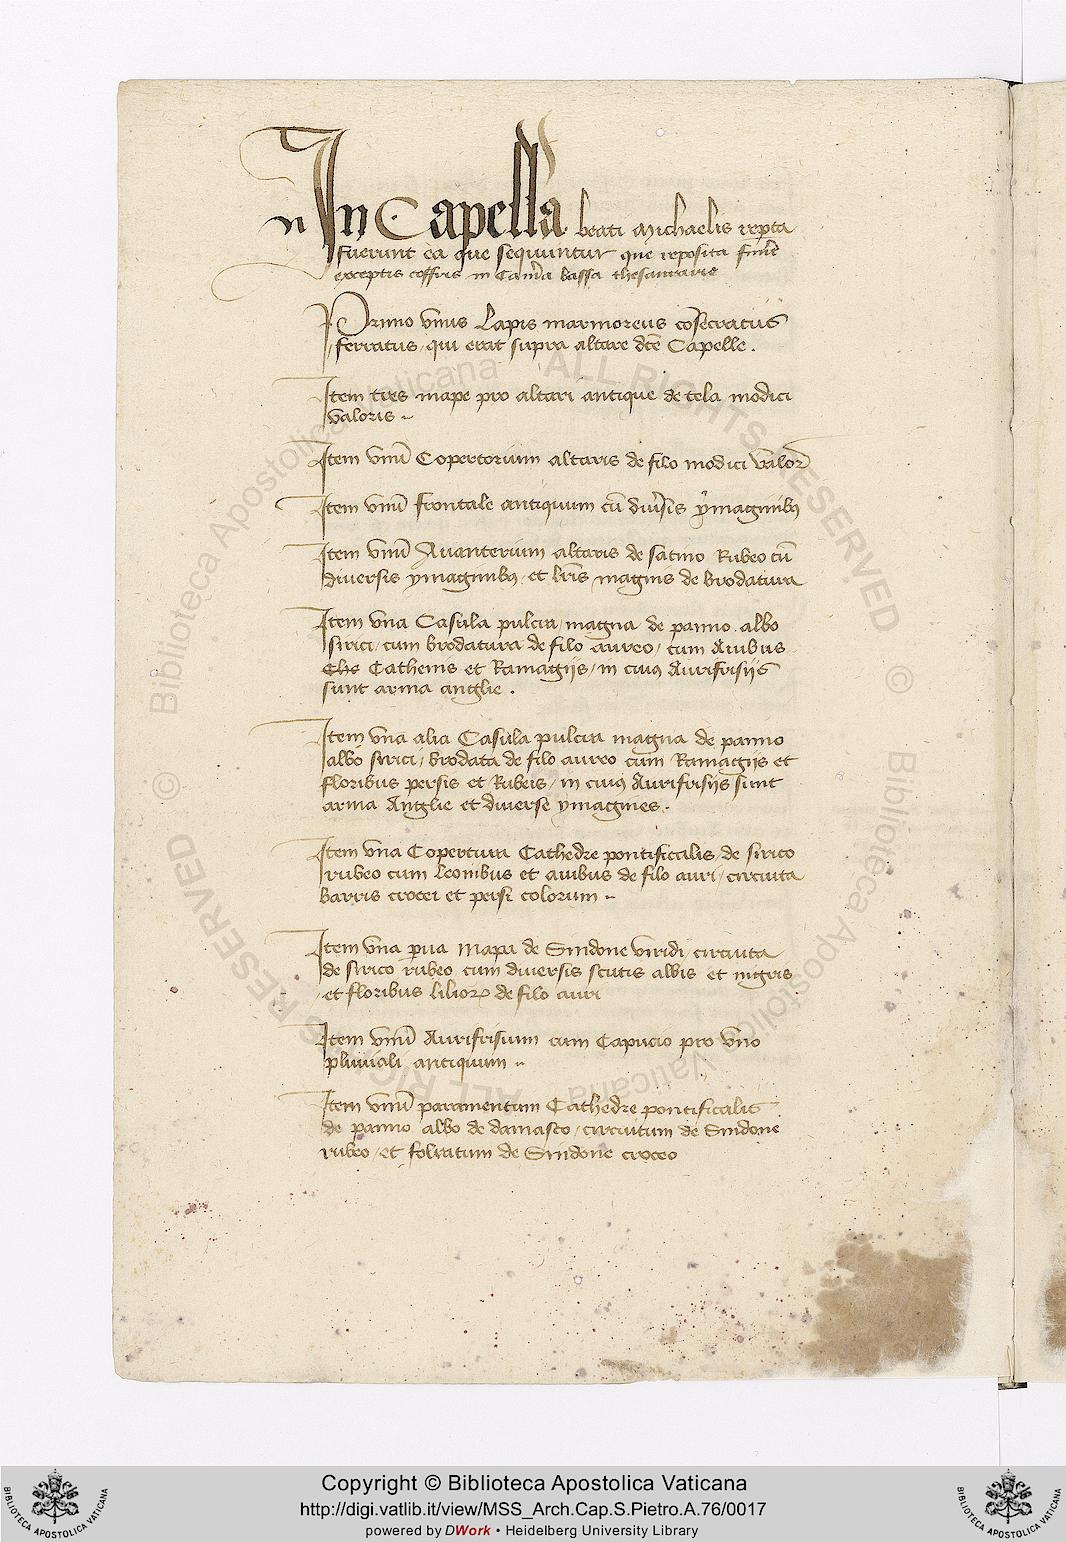 n In Capella beati Michaelis rep̱ta
fuerunt ea que sequuntur que reposita fuer̄
exceptis coffris in Cam̄a bassa thesaurarie
Primo vnus Lapis marmoreus cōsecratus
ferratus, qui erat supra altare dc̄e Capelle.
Item tres mape pro altari antique de tela modici
valoris
Item vnū Copertorium altaris de filo modici valor
Item vnū frontale antiquum cū diuʼsis ymaginibꝫ
Item vnū Auanterium altaris de satino Rubeo cū
diuersis ymaginibꝫ, et lr̄is magnis de brodatura
Item vna Casula pulcra, magna de panno albo
sirici, cum brodatura de filo aureo, cum Auibus
Che Cathenis et Ramagijs, in cuiꝰ Aurifrisijs
sunt arma anglie.
Item vna alia Casula pulcra magna de panno
albo sirici, brodata de filo aureo cum Ramagijs et
floribus persis et Rubeis, in cuiꝰ Aurifrisijs sunt
arma Anglie et diuerse ymagines.
Item vna Copertura Cathedre pontificalis, de sirico
rubeo cum leonibus et auibus de filo auri, circuita
barris crocei et persi colorum
Item vna ꝑua Mapa de Sindone viridi, circuita
de sirico rubeo cum diuersis scutis albis et nigris
et floribus lilioꝝ de filo auri
Item vnū Aurifrisium cum Capucio pro vno
pluuiali antiquum
Item vnū paramentum Cathedre pontificalis
de panno albo de damasco, circuitum de Sindone
rubeo, et folratum de Sindone croceo
© Biblioteca Apostolica Vaticana ALL RIGHTS RESERVED
© Biblioteca Apostolica Vaticana ALL RIGHTS RESERVED
BIBLIOTECA APOSTOLICA VATICANA
Copyright © Biblioteca Apostolica Vaticana
http://digi.vatlib.it/view/MSS_Arch.Cap.S.Pietro.A.76/0017
powered by DWork • Heidelberg University Library
BIBLIOTECA APOSTOLICA VATICANA